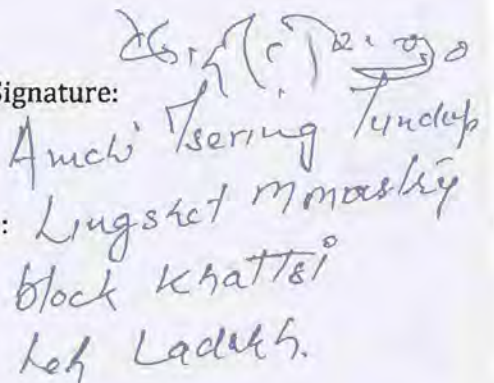 Signature:
Amchi Tsering Tundup
: Lingshet Monastry
block Khattsi
Leh Ladakh.